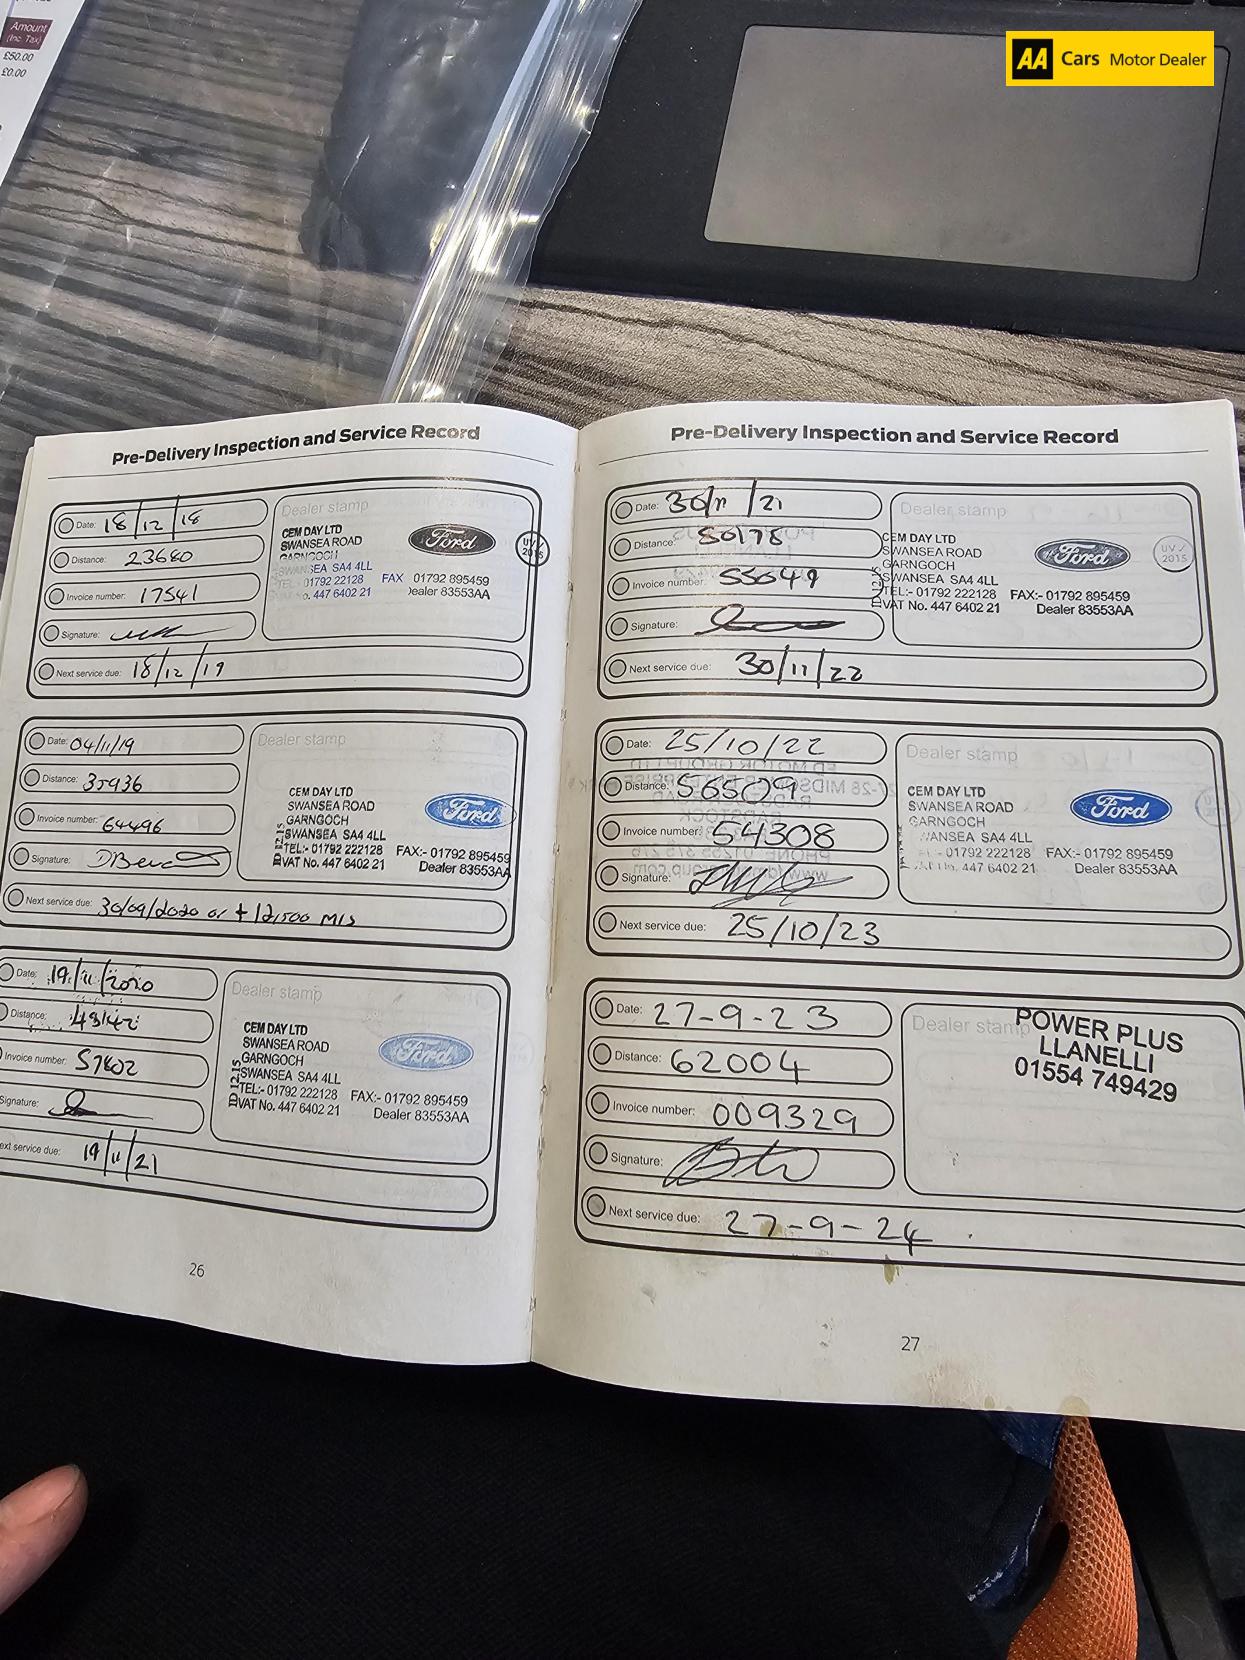 Amount
(Inc. Tax)
£50.00
£0.00
AA Cars Motor Dealer
Pre-Delivery Inspection and Service Record
Date: 18/12/18
Distance: 23680
Invoice number: 17541
Signature:
Next service due: 18/12/19
Dealer stamp
CEM DAY LTD
SWANSEA ROAD
GARNGOCH
SWANSEA SA4 4LL
TEL:- 01792 22128 FAX 01792 895459
o. 447 6402 21 Dealer 83553AA
Ford
UV✓
2015
Date: 04/11/19
Distance: 35936
Invoice number: 64496
Signature:
Next service due: 30/09/2020 or + 12,500 MLS
Dealer stamp
CEM DAY LTD
SWANSEA ROAD
GARNGOCH
SWANSEA SA4 4LL
TEL:- 01792 222128 FAX:- 01792 895459
VAT No. 447 6402 21 Dealer 83553AA
ID 12.15
Ford
Date: 19/11/2020
Distance:
Invoice number: 57802
Signature:
ext service due: 19/11/21
Dealer stamp
CEM DAY LTD
SWANSEA ROAD
GARNGOCH
SWANSEA SA4 4LL
TEL:- 01792 222128 FAX:- 01792 895459
VAT No. 447 6402 21 Dealer 83553AA
ID 12.15
Ford
26
Pre-Delivery Inspection and Service Record
Date: 30/11/21
Distance: 50178
Invoice number: 55649
Signature:
Next service due: 30/11/22
Dealer stamp
CEM DAY LTD
SWANSEA ROAD
GARNGOCH
SWANSEA SA4 4LL
TEL:- 01792 222128 FAX:- 01792 895459
VAT No. 447 6402 21 Dealer 83553AA
ID 12.15
Ford
UV✓
2015
Date: 25/10/22
Distance: 56509
Invoice number: 54308
Signature:
Next service due: 25/10/23
Dealer stamp
CEM DAY LTD
SWANSEA ROAD
GARNGOCH
WANSEA SA4 4LL
- 01792 222128 FAX:- 01792 895459
No. 447 6402 21 Dealer 83553AA
Ford
Date: 27-9-23
Distance: 62004
Invoice number: 009329
Signature:
Next service due: 27-9-24
Dealer stamp
POWER PLUS
LLANELLI
01554 749429
27